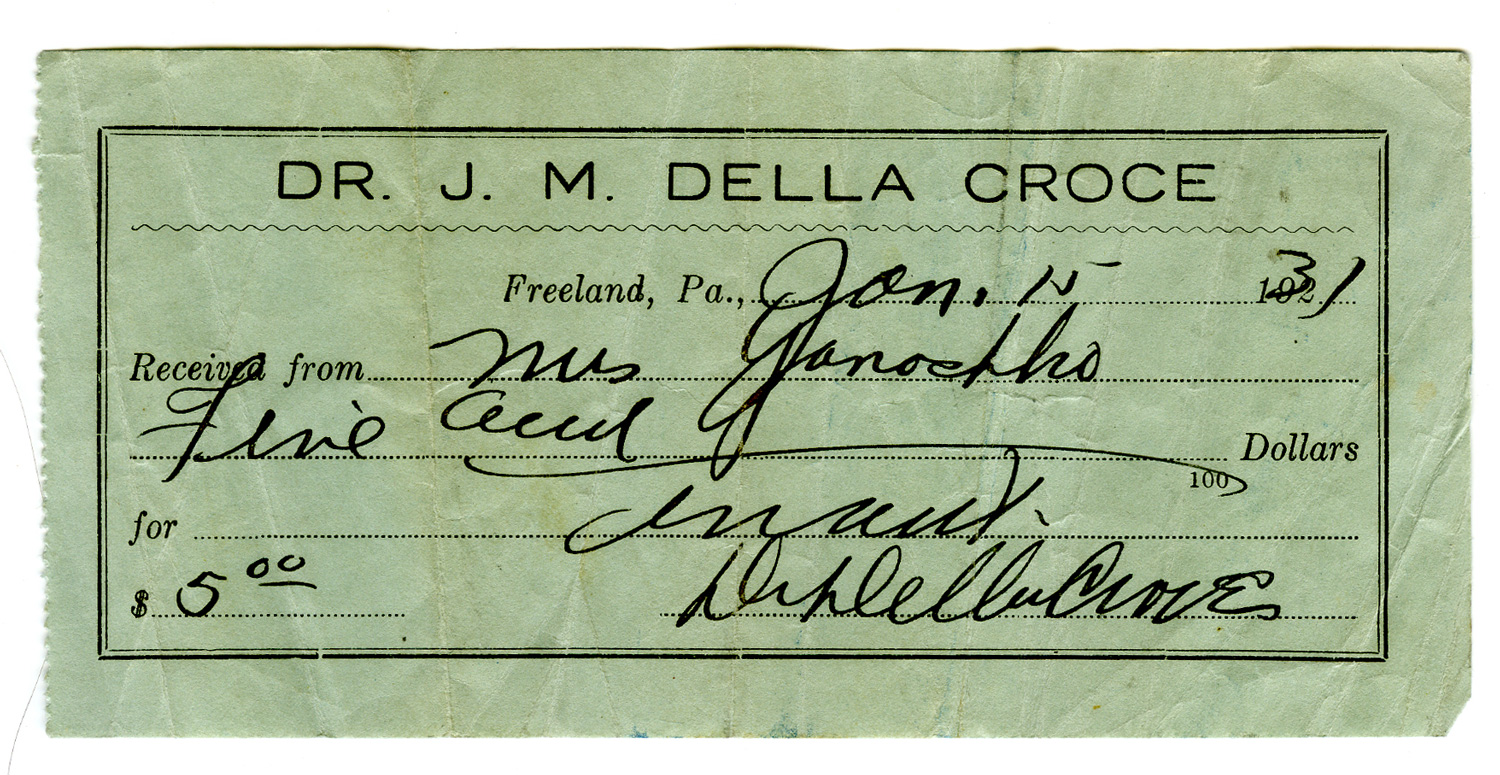 DR. J. M. DELLA CROCE
Freeland, Pa., Jan. 15 1931
Received from Mrs Yanoshko
Five and Dollars
100
for on acct.
$ 5 00 Dr Della Croce